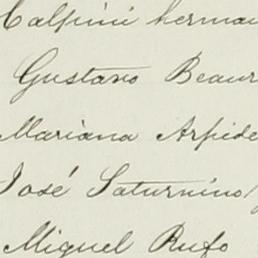 Calpini herman
Gustavo Beaur
Mariana Arpide
José Saturnino
Miguel Rufo